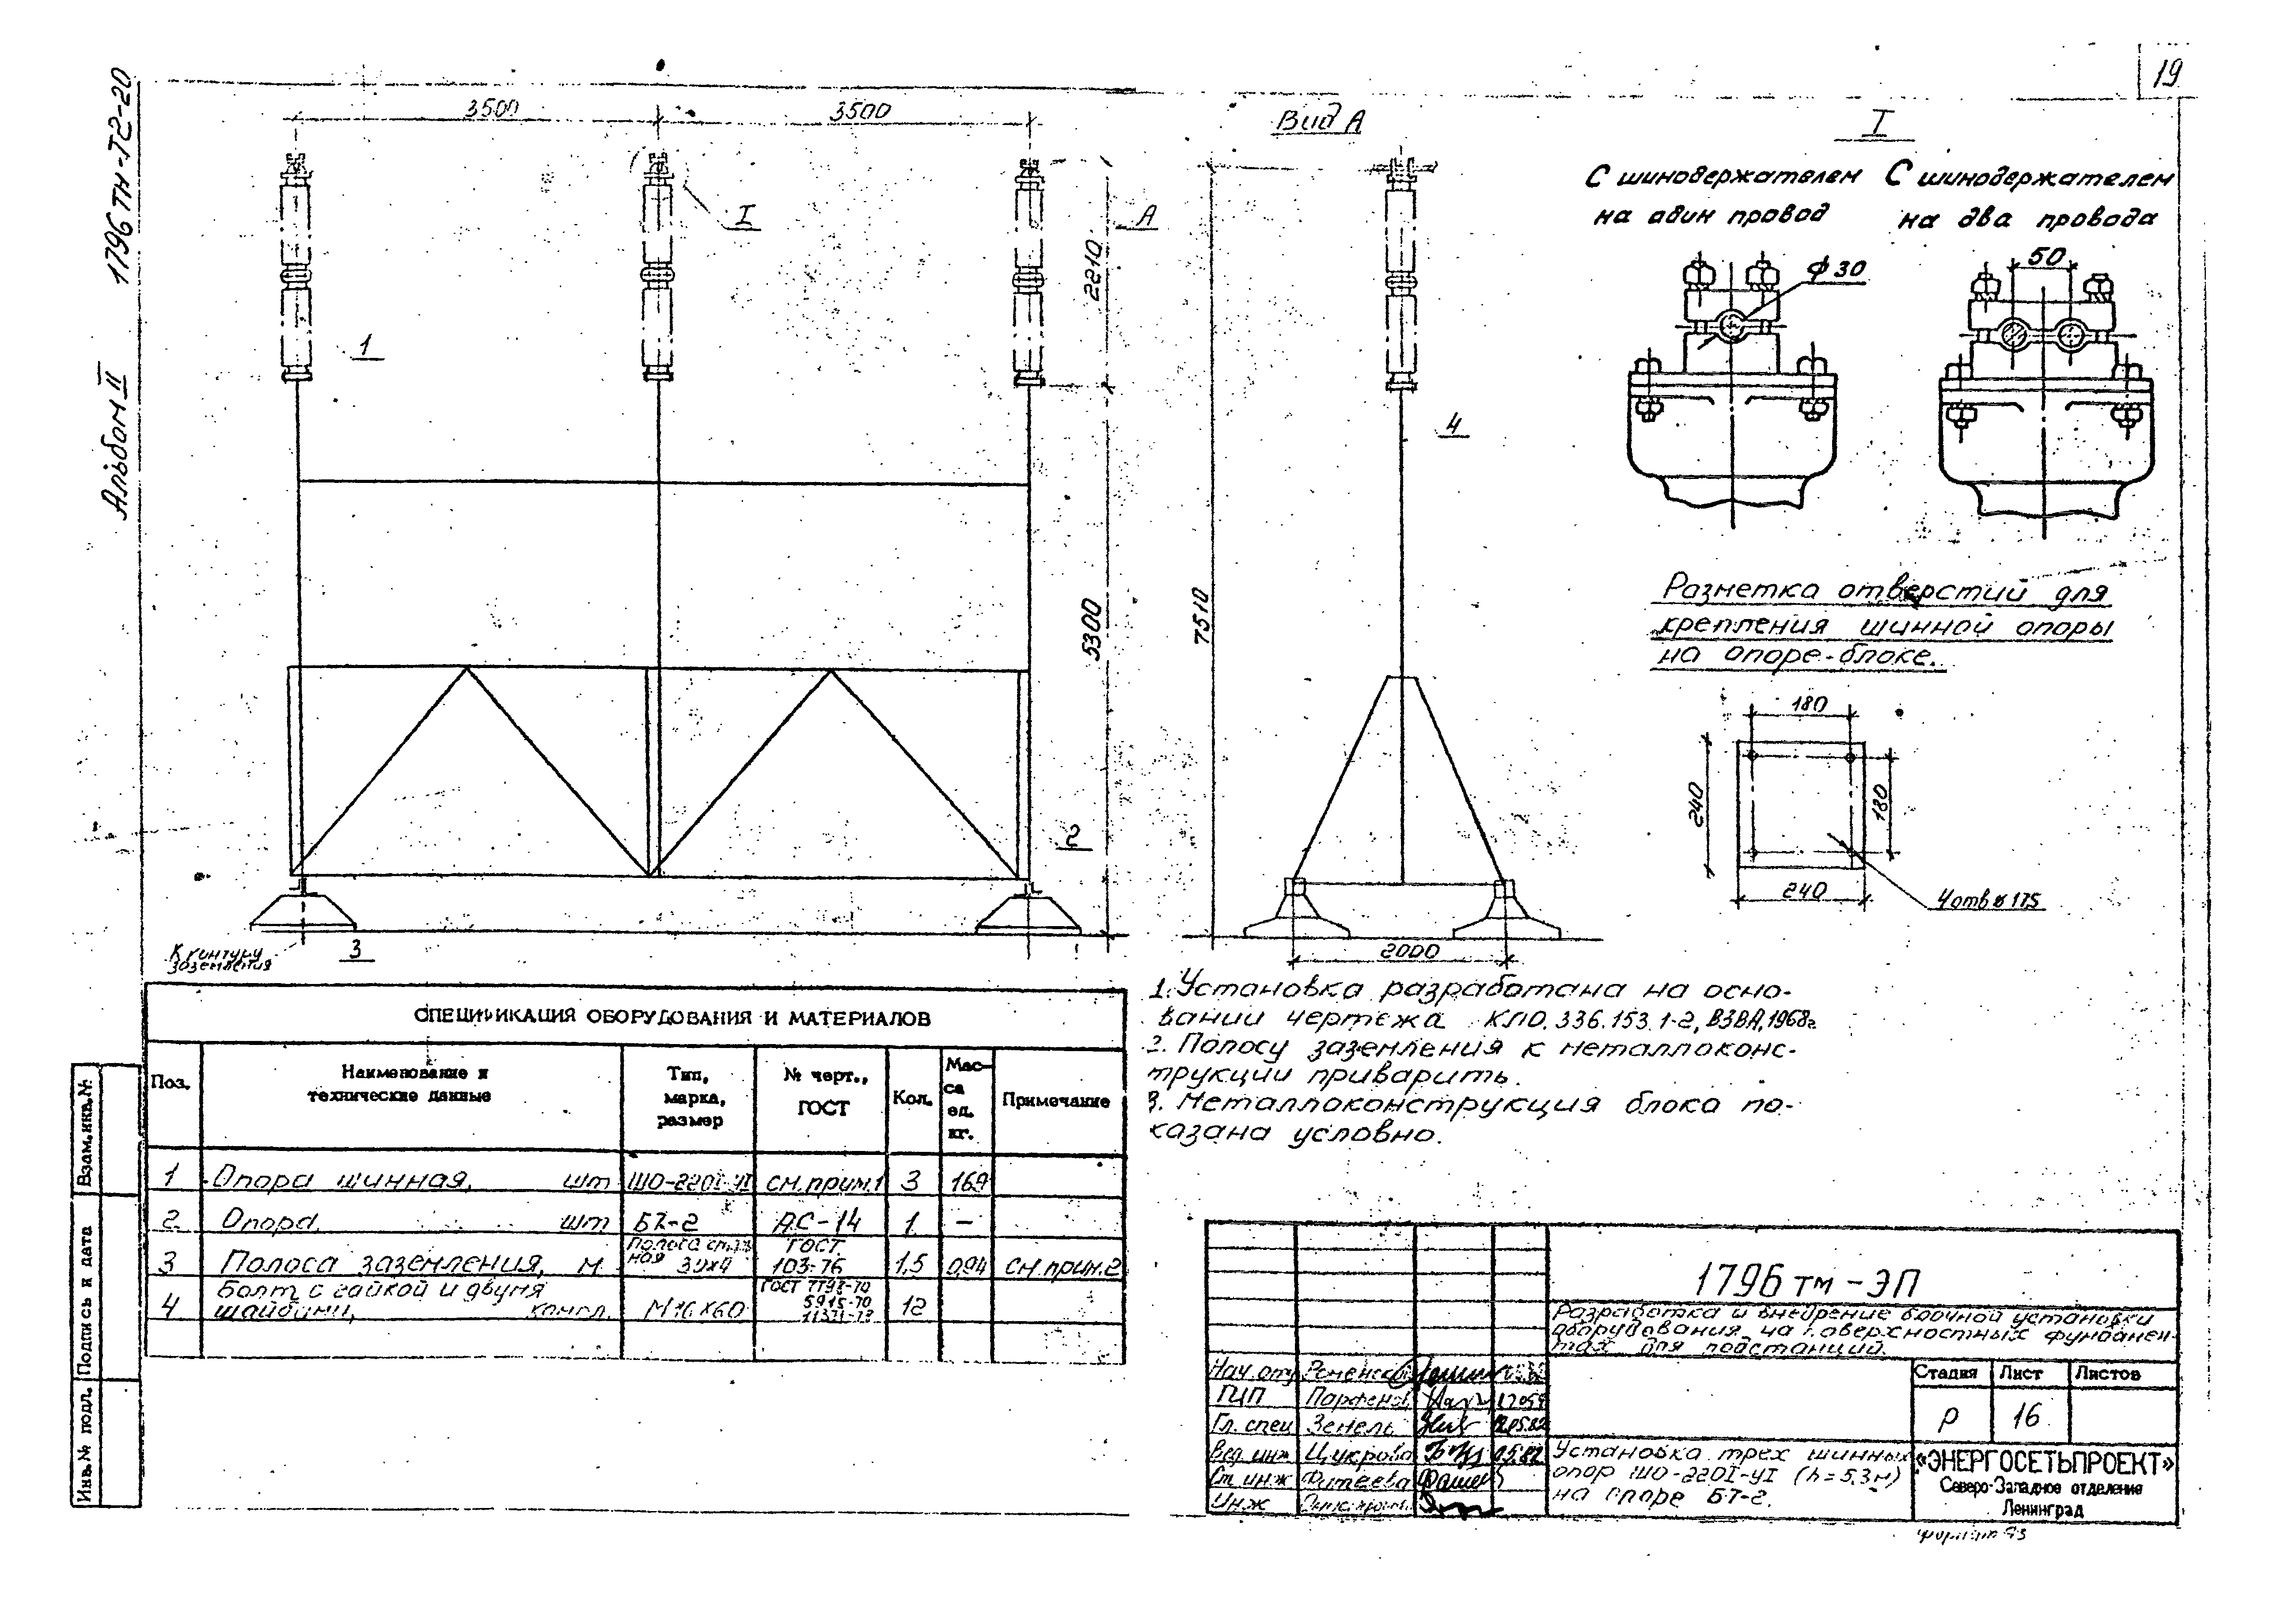 19
1796тм-Т2-20
Альбом II
3500
3500
I
А
1
2210
5300
2
3
К контуру
заземления
Вид А
7510
4
2000
I
С шинодержателем
на один провод
ф 30
С шинодержателем
на два провода
50
Разметка отверстий для
крепления шинной опоры
на опоре-блоке.
180
240
180
240
4 отв ø 17,5
1. Установка разработана на осно-
вании чертежа КЛО.336.153.1-2, ВЗВА, 1968г.
2. Полосу заземления к металлоконс-
трукции приварить.
3. Металлоконструкция блока по-
казана условно.
СПЕЦИФИКАЦИЯ ОБОРУДОВАНИЯ И МАТЕРИАЛОВ
Поз. Наименование и технические данные Тип, марка, размер № черт., ГОСТ Кол. Мас-са ед. кг. Примечание
1 Опора шинная, шт ШО-220I-УI см.прим.1 3 169
2 Опора, шт БТ-2 АС-14 1 —
3 Полоса заземления, м Полоса сталь-ная 30х4 ГОСТ 103-76 1,5 0,94 см.прим.2
4 Болт с гайкой и двумя шайбами, компл. М16х60 ГОСТ 7798-70 5915-70 11371-78 12
Взам.инв.№
Подпись и дата
Инв.№ подл.
1796 тм-ЭП
Разработка и внедрение блочной установки
оборудования на поверхностных фундамен-
тах для подстанций.
Нач.отд Роменский
ГИП Парфенов
Гл. спец Земель 12.05.82
Вед. инж Цукрова 05.82
Ст. инж Фитеева
Инж
Стадия Лист Листов
Р 16
Установка трех шинных
опор ШО-220I-УI (h=5,3м)
на опоре БТ-2.
«ЭНЕРГОСЕТЬПРОЕКТ»
Северо-Западное отделение
Ленинград
формат А3